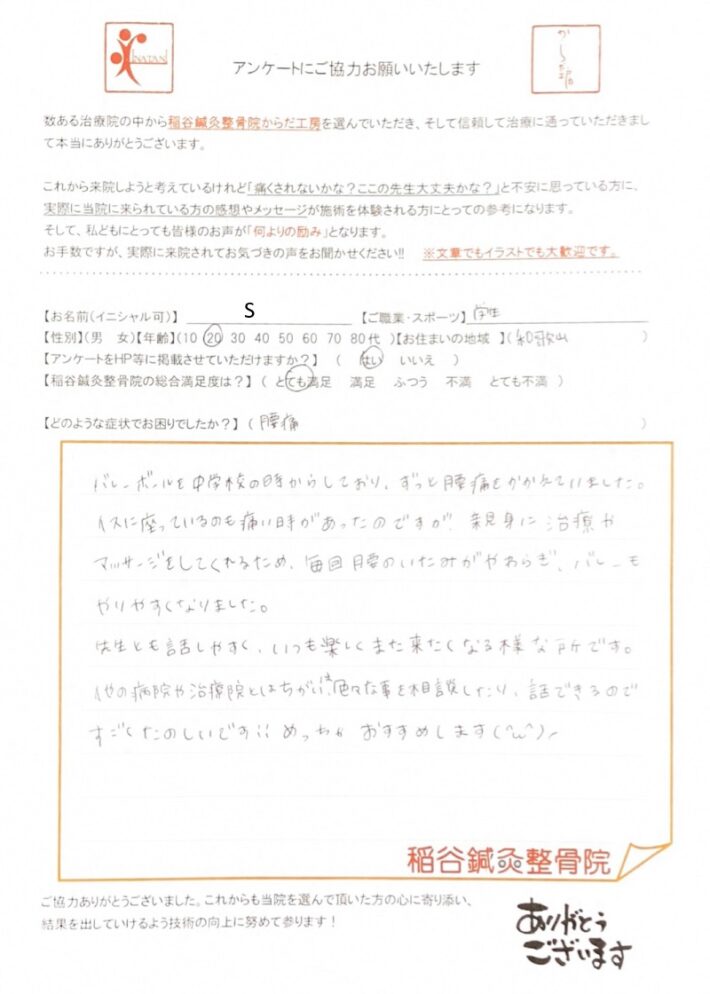 INATANI
アンケートにご協力お願いいたします
からだ工房
数ある治療院の中から稲谷鍼灸整骨院からだ工房を選んでいただき、そして信頼して治療に通っていただきまし
て本当にありがとうございます。
これから来院しようと考えているけれど「痛くされないかな？ここの先生大丈夫かな？」と不安に思っている方に、
実際に当院に来られている方の感想やメッセージが施術を体験される方にとっての参考になります。
そして、私どもにとっても皆様のお声が「何よりの励み」となります。
お手数ですが、実際に来院されてお気づきの声をお聞かせください!! ※文章でもイラストでも大歓迎です。
【お名前(イニシャル可)】 S 【ご職業・スポーツ】学生
【性別】(男 女)【年齢】(10 20 30 40 50 60 70 80代 )【お住まいの地域 】( 和歌山 )
【アンケートをHP等に掲載させていただけますか？】 ( はい いいえ )
【稲谷鍼灸整骨院の総合満足度は？】( とても満足 満足 ふつう 不満 とても不満 )
【どのような症状でお困りでしたか？】( 腰痛 )
バレーボールを中学校の時からしており、ずっと腰痛をかかえていました。
イスに座っているのも痛い時があったのですが、親身に治療や
マッサージをしてくれるため、毎回腰のいたみがやわらぎ、バレーも
やりやすくなりました。
先生とも話しやすく、いつも楽しくまた来たくなる様な所です。
他の病院や治療院とはちがい、色々な事を相談したり、話できるので
すごくたのしいです!! めっちゃ おすすめします(^ω^)ノ
稲谷鍼灸整骨院
ご協力ありがとうございました。これからも当院を選んで頂いた方の心に寄り添い、
結果を出していけるよう技術の向上に努めて参ります！
ありがとう
ございます